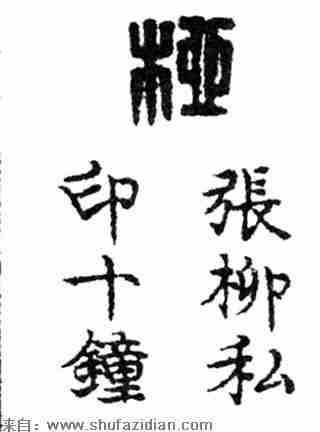 桺
張柳私
印十鐘
来自：www.shufazidian.com